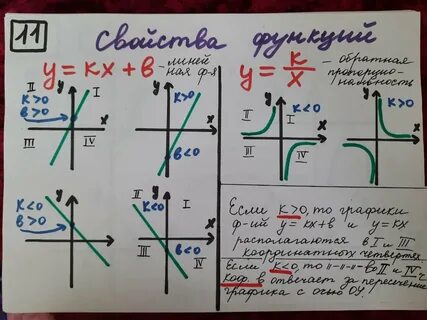 11
Свойства функций
y = kx + b
- линей-
ная ф-я
y = k/x
- обратная
пропорцио-
нальность
II
y
I
k>0
b>0
x
III
IV
y
k>0
x
b<0
k<0
b>0
y
x
II
y
k<0
I
x
III
b<0
IV
II
y
k<0
I
x
III
IV
y
k>0
x
Если k>0, то графики
ф-ий y = kx+b и y = kx
располагаются
в I и III
координатных четвертях
Если k<0, то -||-||-||- во II и IV ч.
Коэф. b отвечает за пересечение
графика с осью ОУ.